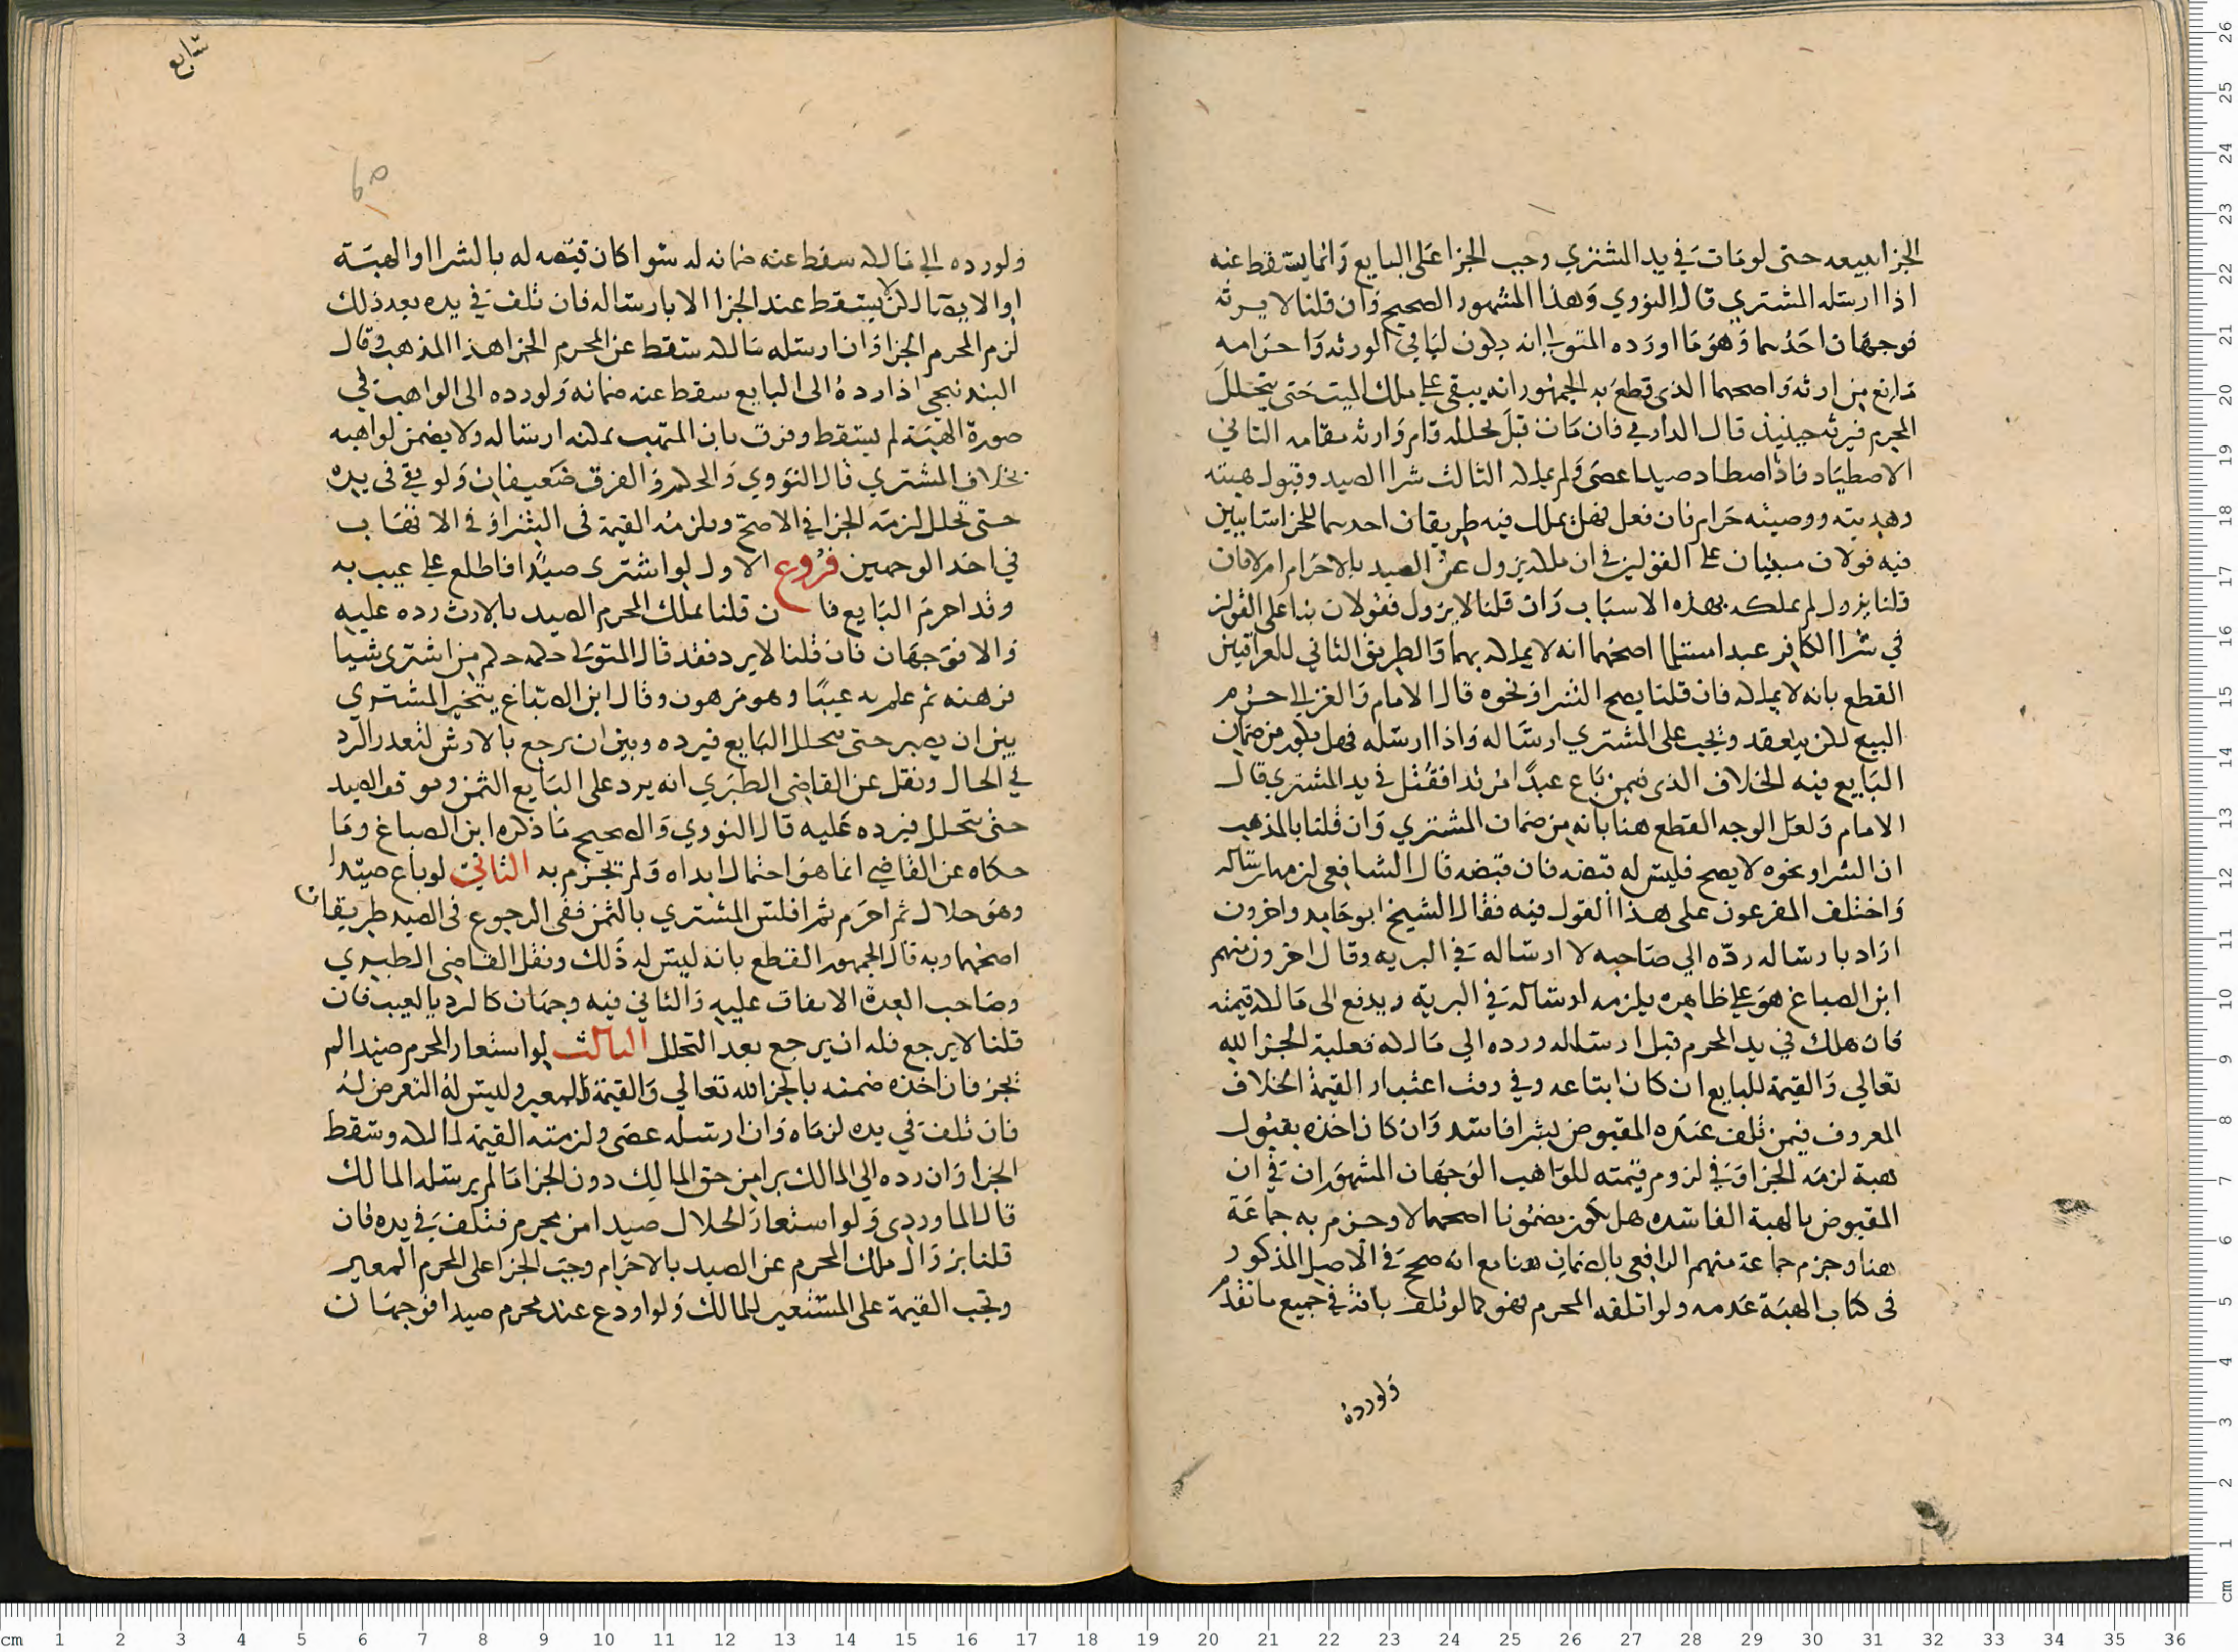 الجزا ببيعه حتى لو مات في يد المشتري وجب الجزا على البايع وانما يسقط عنه
اذا ارسله المشتري قال النووي وهذا المشهور الصحيح وان قلنا لا يرثه
فوجهان احدهما وهو ما اورده المتولي انه يكون لباقي الورثه واحرامه
مانع من ارثه واصحهما الذى قطع به الجمهور انه يبقى على ملك الميت حتى يتحلل
المحرم فيرثه حينيذ قال الدارمي فان مات قبل تحلله قام وارثه مقامه الثاني
الاصطياد فاذا اصطاد صيدا عصى ولم يملكه الثالث شرا الصيد وقبول هبته
وهديته ووصيته حرام فان فعل فهل يملك فيه طريقان احدهما للخراسانيين
فيه قولان مبنيان على القولين في ان ملكه يزول عن الصيد بالاحرام ام لا فان
قلنا يزول لم يملكه بهذه الاسباب وان قلنا لا يزول فقولان بنا على القولين
في شرا الكافر عبدا مسلما اصحهما انه لا يملكه بهما والطريق الثاني للعراقيين
القطع بانه لا يملكه فان قلنا يصح الشرا ونحوه قال الامام والغزالي حرم
البيع لكن ينعقد ويجب على المشتري ارساله واذا ارسله فهل يكون من ضمان
البايع فيه الخلاف الذى فيمن باع عبدا مرتدا فقتل في يد المشتري قال
الامام ولعل الوجه القطع هنا بانه من ضمان المشتري وان قلنا بالمذهب
ان الشرا ونحوه لا يصح فليس له قبضه فان قبضه قال الشافعي لزمه ارساله
واختلف المفرعون على هذا القول فيه فقال الشيخ ابو حامد واخرون
اراد بارساله ردّه الي صاحبه لا ارساله في البريه وقال اخرون منهم
ابن الصباغ هو على ظاهره يلزمه ارساله في البرية ويدفع الى مالكه قيمته
فان هلك في يد المحرم قبل ارساله ورده الي مالكه فعليه الجزا لله
تعالي والقيمة للبايع ان كان ابتاعه وفي وقت اعتبار القيمة الخلاف
المعروف فيمن تلف عنده المقبوض بشرا فاسد وان كان اخذه بقبول
هبة لزمه الجزا وفي لزوم قيمته للواهب الوجهان المشهوران في ان
المقبوض بالهبة الفاسده هل يكون مضمونا اصحهما لا وجزم به جماعة
هنا وجزم جماعة منهم الرافعي بالضمان هنا مع انه صحح في الاصل المذكور
في كتاب الهبة عدمه ولو اتلفه المحرم فهو كما لو تلف بافة في جميع ما تقدم
ولورده
شابع
ولو رده الي مالكه سقط عنه ضمانه له سوا كان قبضه له بالشرا او الهبة
او الايصا لكن لا يسقط عنه الجزا الا بارساله فان تلف في يده بعد ذلك
لزم المحرم الجزا وان ارسله مالكه سقط عن المحرم الجزا هذا المذهب وقال
البندنيجي اذا رده الى البايع سقط عنه ضمانه ولو رده الى الواهب في
صورة الهبة لم يسقط وفرق بان المتهب يمكنه ارساله ولا يضمن لواهبه
بخلاف المشتري قال النووي والحكم والفرق ضعيفان ولو بقي في يده
حتى تحلل لزمه الجزا في الاصح ويلزمه القيمة في الشرا وفي الاتهاب
في احد الوجهين فروع الاول لو اشترى صيدا فاطلع على عيب به
وقد احرم البايع فا ن قلنا يملك المحرم الصيد بالارث رده عليه
والا فوجهان فان قلنا لا يرد فقد قال المتولي حكمه حكم من اشترى شيا
فرهنه ثم علم به عيبا وهو مرهون وقال ابن الصباغ يتخير المشتري
بين ان يصبر حتى يتحلل البايع فيرده وبين ان يرجع بالارش لتعذر الرد
في الحال ونقل عن القاضي الطبري انه يرد على البايع الثمن ويوقف الصيد
حتى يتحلل فيرده عليه قال النووي والصحيح ما ذكره ابن الصباغ وما
حكاه عن القاضي انما هو احتمال ابداه ولم يجزم به الثاني لو باع صيدا
وهو حلال ثم احرم ثم افلس المشتري بالثمن ففي الرجوع في الصيد طريقان
اصحهما وبه قال الجمهور القطع بانه ليس له ذلك ونقل القاضي الطبري
وصاحب العدة الاتفاق عليه والثاني فيه وجهان كالرد بالعيب فان
قلنا لا يرجع فله ان يرجع بعد التحلل الثالث لو استعار المحرم صيدا لم
يجز فان اخذه ضمنه بالجزا لله تعالي والقيمة للمعير وليس له التعرض له
فان تلف في يده لزماه وان ارسله عصى ولزمته القيمة لمالكه وسقط
الجزا وان رده الي المالك برا من حق المالك دون الجزا ما لم يرسله المالك
قال الماوردى ولو استعار الحلال صيدا من محرم فتلف في يده فان
قلنا بزوال ملك المحرم عن الصيد بالاحرام وجب الجزا على المحرم المعير
وتجب القيمة على المستعير للمالك ولو اودع عند محرم صيدا فوجهان